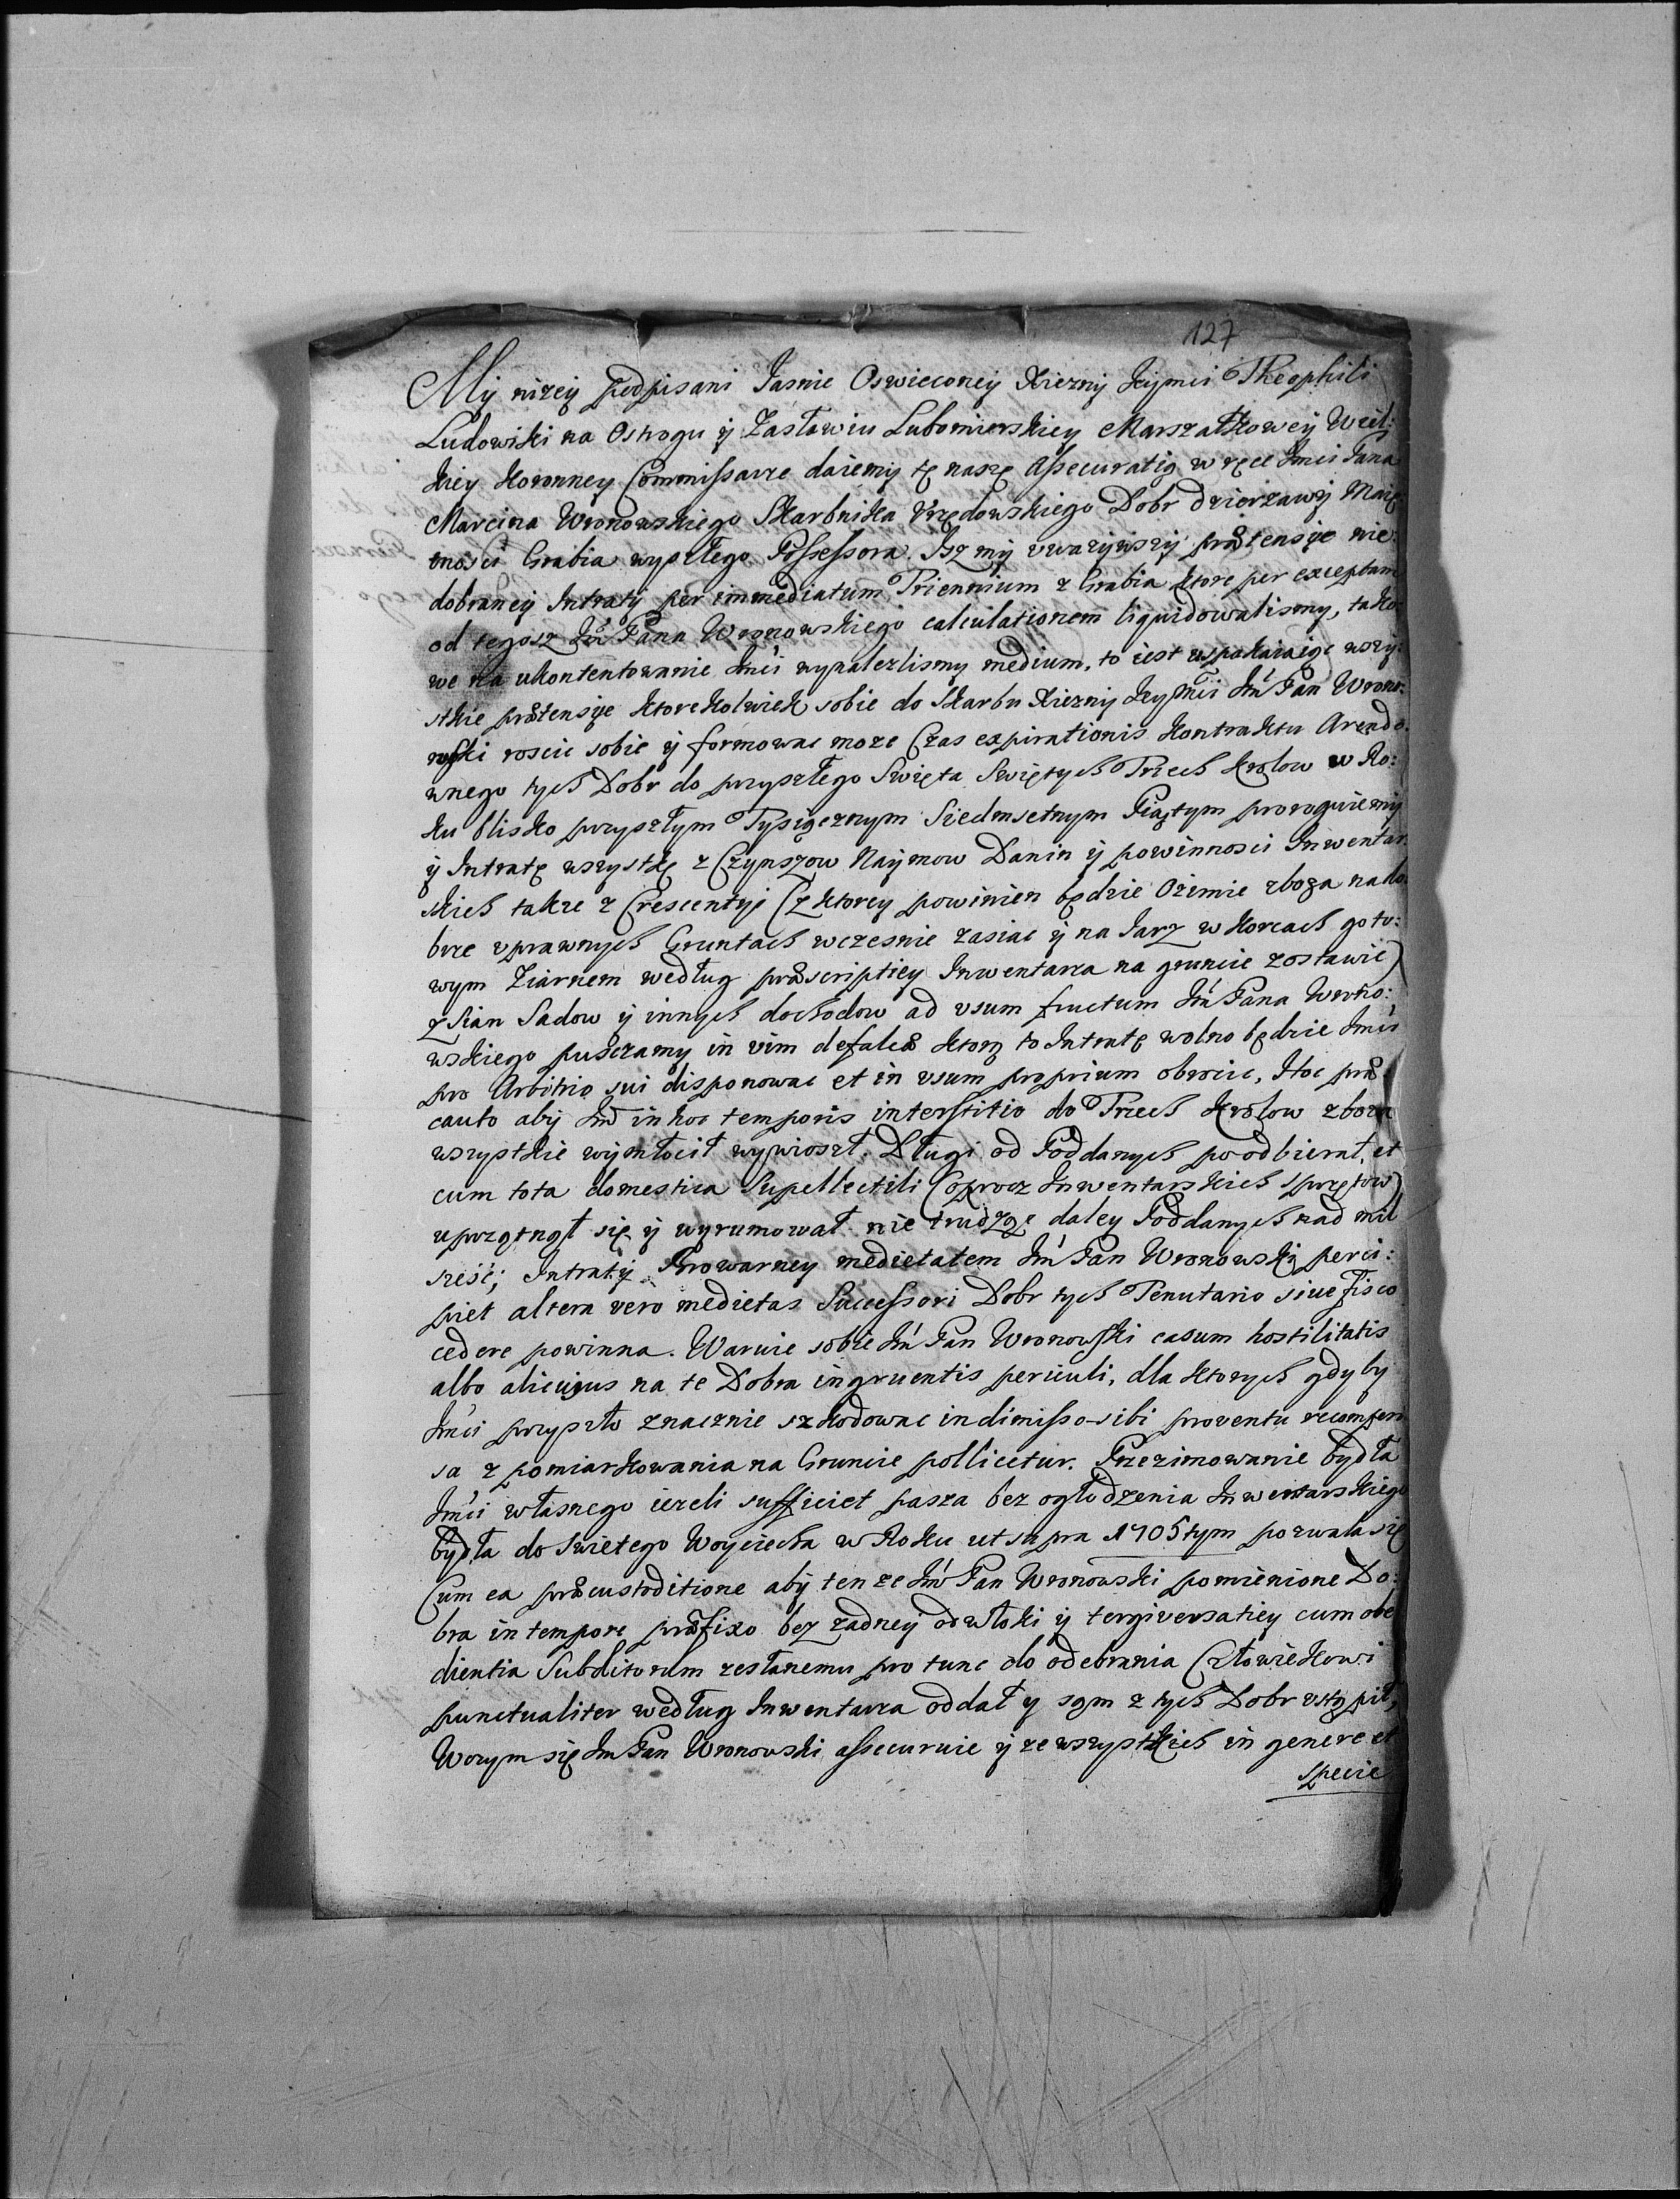 127
My nizey podpisani Jasnie Oswieconey Xiezny Jeymci Theophili
Ludowiki na Ostrogu y Zasławiu Lubomirskiey Marszałkowey Wiel:
kiey Koronney Commissarze daiemy tę naszę Assecuratią w ręce Jmci Pana
Marcina Wronowskiego Skarbnika Vrzędowskiego Dobr dzierzawy Maię:
tnosci Grabia wyszłego Possessora. Isz my vwazywszy prætensye nie:
dobraney Intraty per immediatum Triennium z Grabia ktore per exceptam
od tegosz Jm Pana Wronowskiego calculationem liquidowalismy, tako:
we na ukontentowanie Jmci wynalezlismy medium, to iest uspakaiaiąc wszy:
stkie prætensye ktorekolwiek sobie do Skarbu Xiezny Jeymci Jm Pan Wrono:
wski roscic sobie y formowac moze Czas expirationis Kontraktu Arendo:
wnego tych Dobr do przyszłego Swięta Swiętych Trzech Krolow w Ro:
ku blisko przyszłym Tysiącznym Siedmsetnym Piątym proroguiemy
y Intratę wszystkę z Czynszow Naymow Danin y powinnosci Inwentar:
skich takze z Crescentyi (z ktorey powinien będzie Ozimie zboza na do:
brze vprawnych Gruntach wczesnie zasiac y na Jarz w Korcach goto:
wym Ziarnem według præscriptiey Inwentarza na gruncie zostawic)
z Sian Sadow y innych dochodow ad vsum fructum Jm Pana Wrono:
wskiego pusczamy in vim defalcæ ktorą to Intratę wolno będzie Jmci
pro Arbitrio sui disponowac et in vsum proprium obrocic, Hoc præ
cauto aby Jm in hoc temporis interstitio do Trzech Krolow zboza
wszystkie wymłocił wywiozł. Długi od Poddanych poodbierał, et
cum tota domestica Supellectili (oprocz Inwentarskich sprzętow)
uprzątnął się y wyrumował nie trudząc daley Poddanych nad mil
szesc; Intraty Browarney medietatem Jm Pan Wronowski perci:
piet altera vero medietas Successori Dobr tych Tenutario siue fisco
cedere powinna. Waruie sobie Jm Pan Wronowski casum hostilitatis
albo alicujus na te Dobra ingruentis periculi, dla ktorych gdyby
Jmci przyszło znacznie szkodowac in dimisso sibi proventu recompen
sa z pomiarkowania na Gruncie pollicetur. Przezimowanie bydła
Jmci własnego iezeli sufficiet pasza bez ogłodzenia Inwentarskiego
bydła do Swietego Woyciecha w Roku ut supra 1705tym pozwala się
Cum ea præcustoditione aby tenze Jm Pan Wronowski pomienione Do:
bra in tempore præfixo bez zadney odwłoki y tergiversatiey cum obe
dientia Subditorum zesłanemu pro tunc do odebrania Człowiekowi
punctualiter według Inwentarza oddał y sam z tych Dobr vstąpił,
Wczym się Jm Pan Wronowski assecuruie y ze wszystkich in genere et
specie